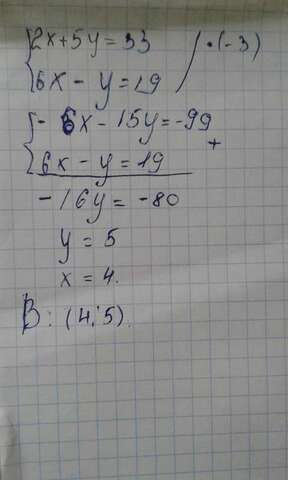 {2x+5y=33 /·(-3)
{6x-y=19
{-6x-15y=-99
{6x-y=19 +
-16y=-80
y=5
x=4.
В: (4;5).